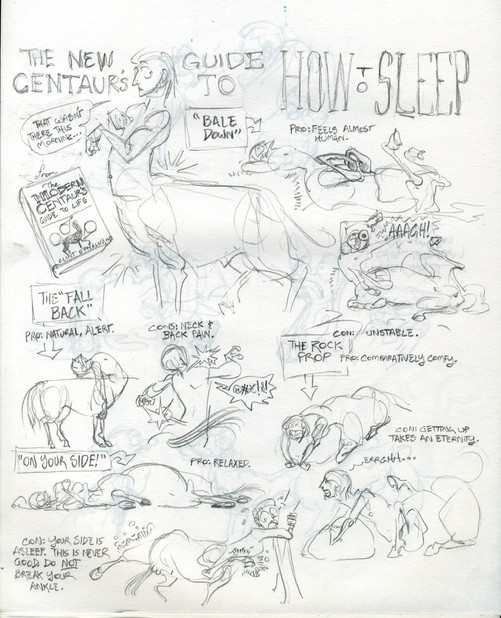 THE NEW CENTAUR'S GUIDE TO HOW TO SLEEP
THAT WASN'T
THERE THIS
MORNING...
From
The
MODERN
CENTAUR'S
GUIDE TO LIFE
"BALE
DOWN"
PRO: FEELS ALMOST
HUMAN.
AAAGH!
CON: UNSTABLE.
THE "FALL
BACK"
PRO: NATURAL, ALERT.
CONS: NECK &
BACK PAIN.
THE ROCK
PROP
PRO: COMPARATIVELY COMFY.
CON: GETTING UP
TAKES AN ETERNITY.
ERRGHH...
"ON YOUR SIDE!"
PRO: RELAXED.
CON: YOUR SIDE IS
ASLEEP. THIS IS NEVER
GOOD. DO NOT
BREAK YOUR
ANKLE.